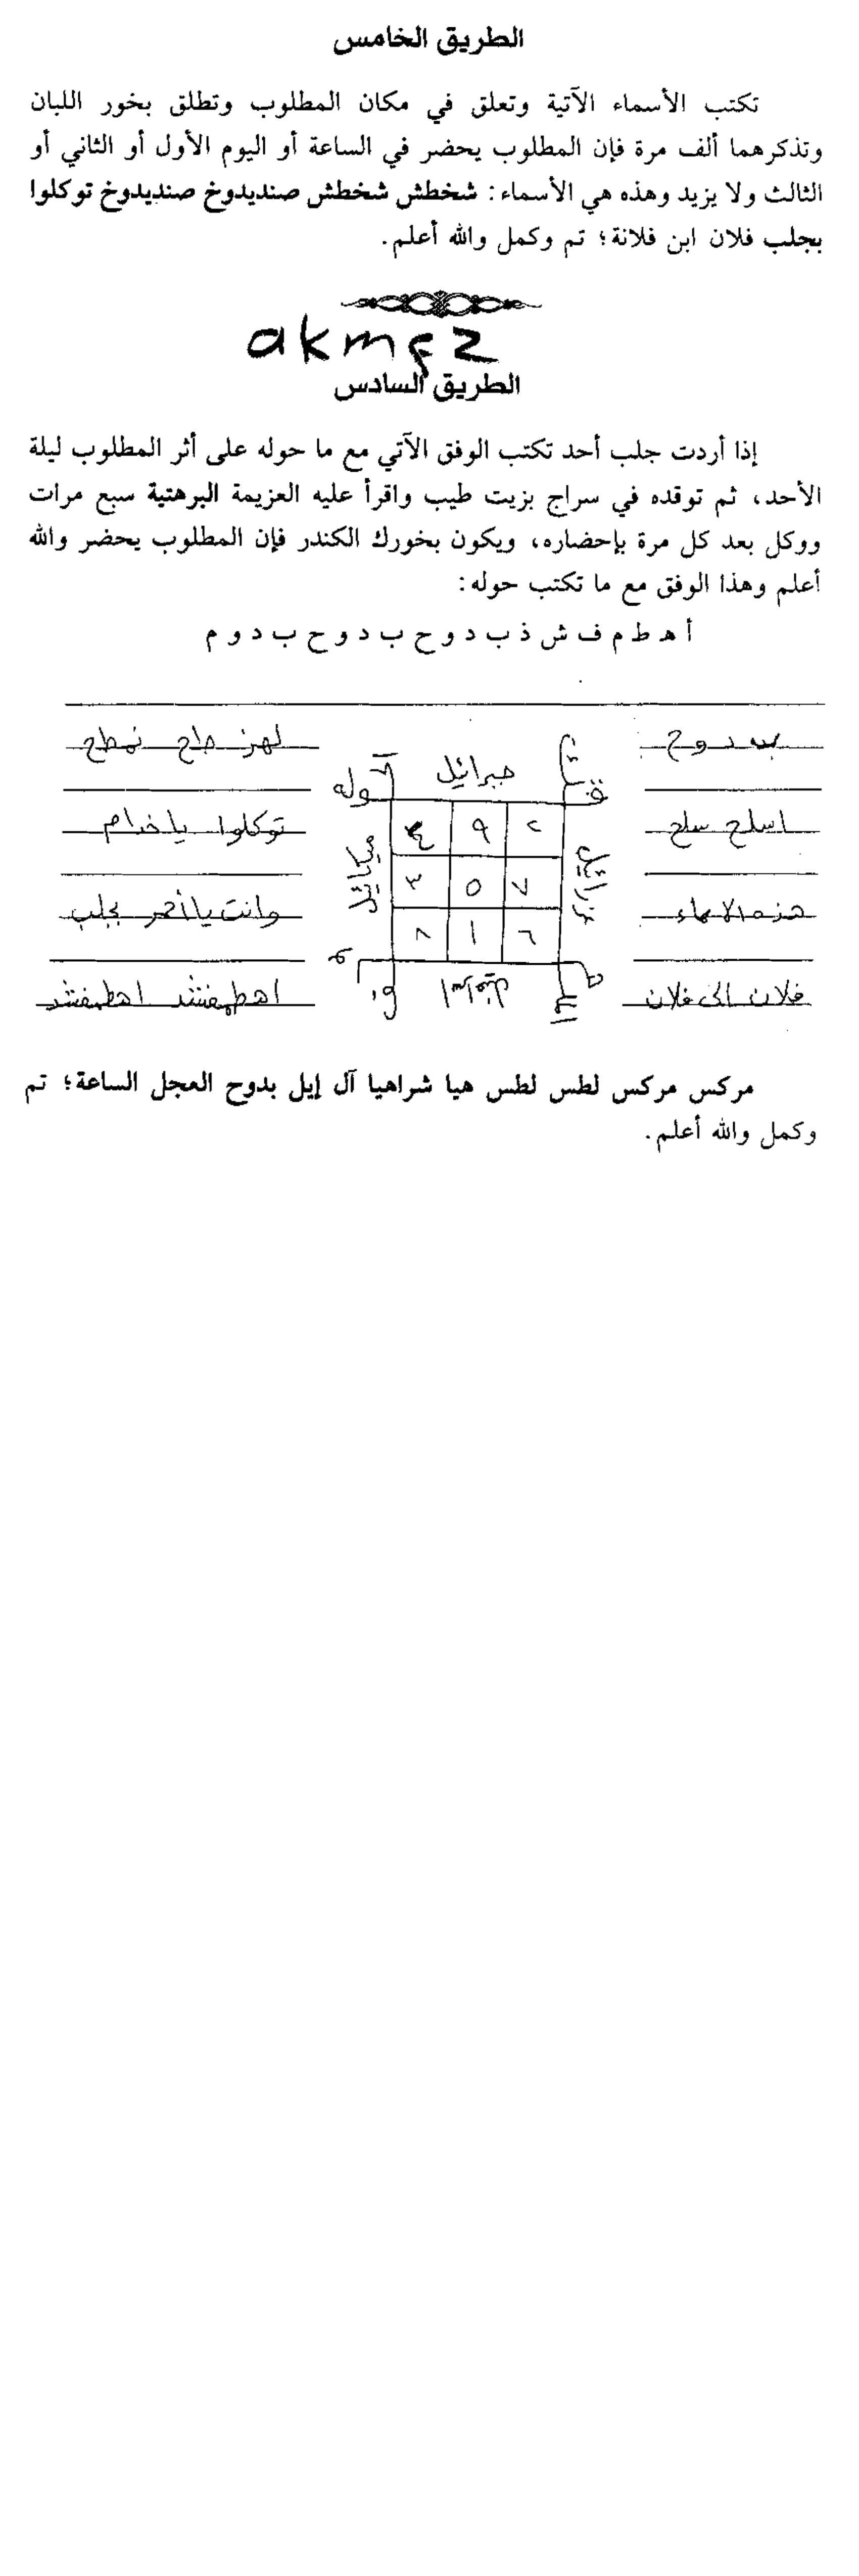 الطريق الخامس
تكتب الأسماء الآتية وتعلق في مكان المطلوب وتطلق بخور اللبان
وتذكرهما ألف مرة فإن المطلوب يحضر في الساعة أو اليوم الأول أو الثاني أو
الثالث ولا يزيد وهذه هي الأسماء: شخطش شخطش صنديدوخ صنديدوخ توكلوا
بجلب فلان ابن فلانة؛ تم وكمل والله أعلم.
الطريق السادس
إذا أردت جلب أحد تكتب الوفق الآتي مع ما حوله على أثر المطلوب ليلة
الأحد، ثم توقده في سراج بزيت طيب واقرأ عليه العزيمة البرهتية سبع مرات
ووكل بعد كل مرة بإحضاره، ويكون بخورك الكندر فإن المطلوب يحضر والله
أعلم وهذا الوفق مع ما تكتب حوله:
أ هـ ط م ف ش ذ ب د و ح ب د و ح ب د و م
بدوح
اسلح سلح
هذه الاسماء
فلان الى فلان
جبرائيل
قوله
عزرائيل
ميكائيل
٤ ٩ ٢
٣ ٥ ٧
٨ ١ ٦
توكلوا يا خدام
وانت يا أحمر بجلب
اهطمفشد اهطمفشد
مركس مركس لطس لطس هيا شراهيا آل إيل بدوح العجل الساعة؛ تم
وكمل والله أعلم.